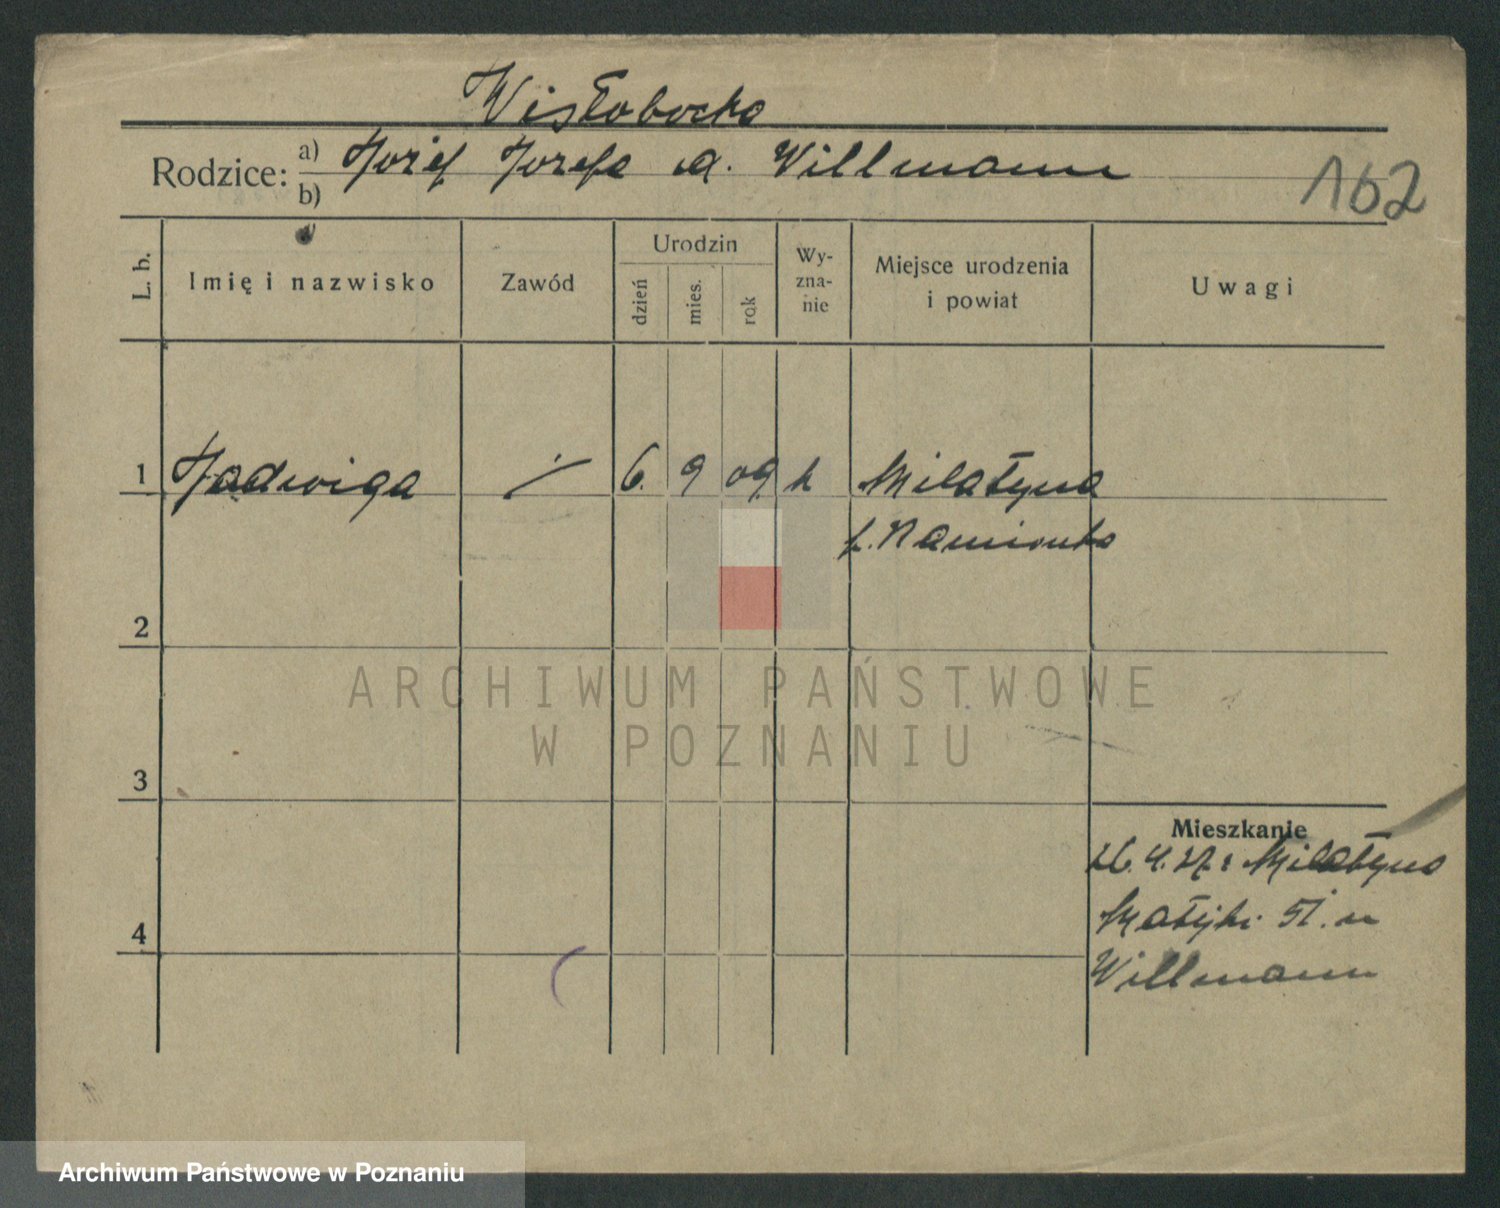 Wisłobocka
Rodzice: a) Józef Józefa d. Willmann
b)
162
L. b.
Imię i nazwisko
Zawód
Urodzin
dzień
mies.
rok
Wy-
zna-
nie
Miejsce urodzenia
i powiat
Uwagi
1 Jadwiga ./. 6. 9 09. k Milatyna
p. Kamionka
2
ARCHIWUM PAŃSTWOWE
W POZNANIU
3
Mieszkanie
26.4.27: Milatyna
4
Matejki 51. u
Willmann
Archiwum Państwowe w Poznaniu